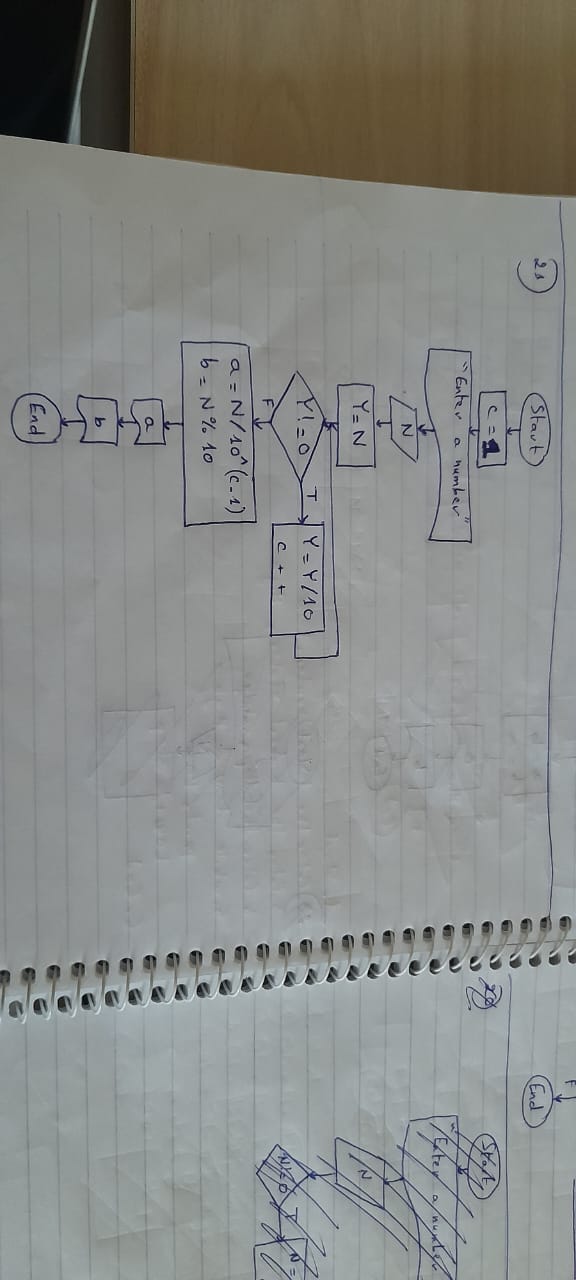 21)
Start
c = 1
"Enter a number"
N
Y = N
Y! = 0
T
Y = Y/10
c + +
F
a = N/10^(c-1)
b = N % 10
a
b
End
F
End
Start
"Enter a number
N
N! = 0
T
N =